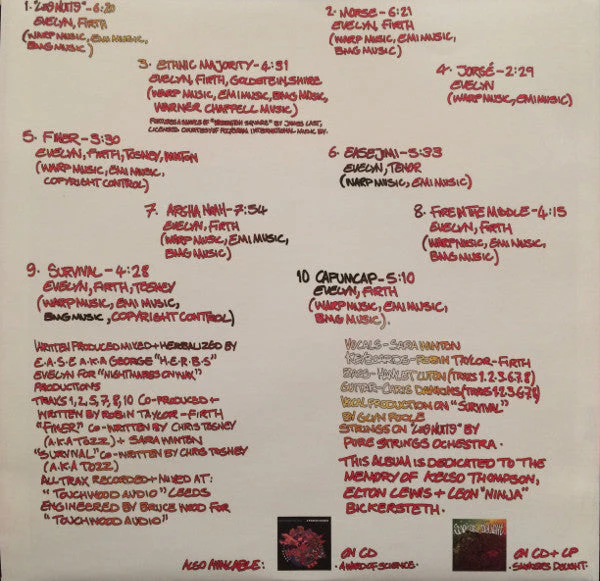 1. "LES NUITS" - 6:20
EVELYN, FIRTH
(WARP MUSIC, EMI MUSIC,
BMG MUSIC)
2. MORSE - 6:21
EVELYN, FIRTH
(WARP MUSIC, EMI MUSIC,
BMG MUSIC)
3. ETHNIC MAJORITY - 4:31
EVELYN, FIRTH, GOLDSTEIN, SHIRE
(WARP MUSIC, EMI MUSIC, BMG MUSIC,
WARNER CHAPPELL MUSIC)
FEATURES A SAMPLE OF "WASHINGTON SQUARE" BY JAMES LAST,
LICENSED COURTESY OF POLYGRAM INTERNATIONAL MUSIC BV.
4. JORSÉ - 2:29
EVELYN
(WARP MUSIC, EMI MUSIC)
5. FINER - 5:30
EVELYN, FIRTH, TOSNEY, WINTON
(WARP MUSIC, EMI MUSIC,
COPYRIGHT CONTROL)
6. EASEJIMI - 5:33
EVELYN, TENOR
(WARP MUSIC, EMI MUSIC)
7. ARGHA NOAH - 7:54
EVELYN, FIRTH
(WARP MUSIC, EMI MUSIC,
BMG MUSIC)
8. FIRE IN THE MIDDLE - 4:15
EVELYN, FIRTH
(WARP MUSIC, EMI MUSIC,
BMG MUSIC)
9. SURVIVAL - 4:28
EVELYN, FIRTH, TOSNEY
(WARP MUSIC, EMI MUSIC,
BMG MUSIC, COPYRIGHT CONTROL)
10 CAPUMCAP - 5:10
EVELYN, FIRTH
(WARP MUSIC, EMI MUSIC,
BMG MUSIC).
WRITTEN PRODUCED MIXED + HERBALIZED BY
E.A.S.E A.K.A GEORGE "H.E.R.B.S"
EVELYN FOR "NIGHTMARES ON WAX"
PRODUCTIONS
TRAXS 1, 2, 5, 7, 8, 10 CO-PRODUCED +
WRITTEN BY ROBIN TAYLOR - FIRTH
"FINER" CO-WRITTEN BY CHRIS TOSNEY
(A.K.A TOZZ) + SARA WINTON
"SURVIVAL" CO-WRITTEN BY CHRIS TOSNEY
(A.K.A TOZZ)
ALL TRAX RECORDED + MIXED AT:
"TOUCHWOOD AUDIO" LEEDS
ENGINEERED BY BRUCE WOOD FOR
"TOUCHWOOD AUDIO"
VOCALS - SARA WINTON
KEYBOARDS - ROBIN TAYLOR-FIRTH
BASS - HAMLET LUTON (TRAXS 1.2.3.6.7.8)
GUITAR - CHRIS DAWKINS (TRAXS 1.2.3.6.7.8)
VOCAL PRODUCTION ON "SURVIVAL"
BY GLYN POOLE
STRINGS ON "LES NUITS" BY
PURE STRINGS OCHESTRA.
THIS ALBUM IS DEDICATED TO THE
MEMORY OF KELSO THOMPSON,
ELTON LEWIS + LEON "NINJA"
BICKERSTETH.
ALSO AVAILABLE:
ON CD
A WORD OF SCIENCE.
ON CD + LP
SMOKERS DELIGHT.